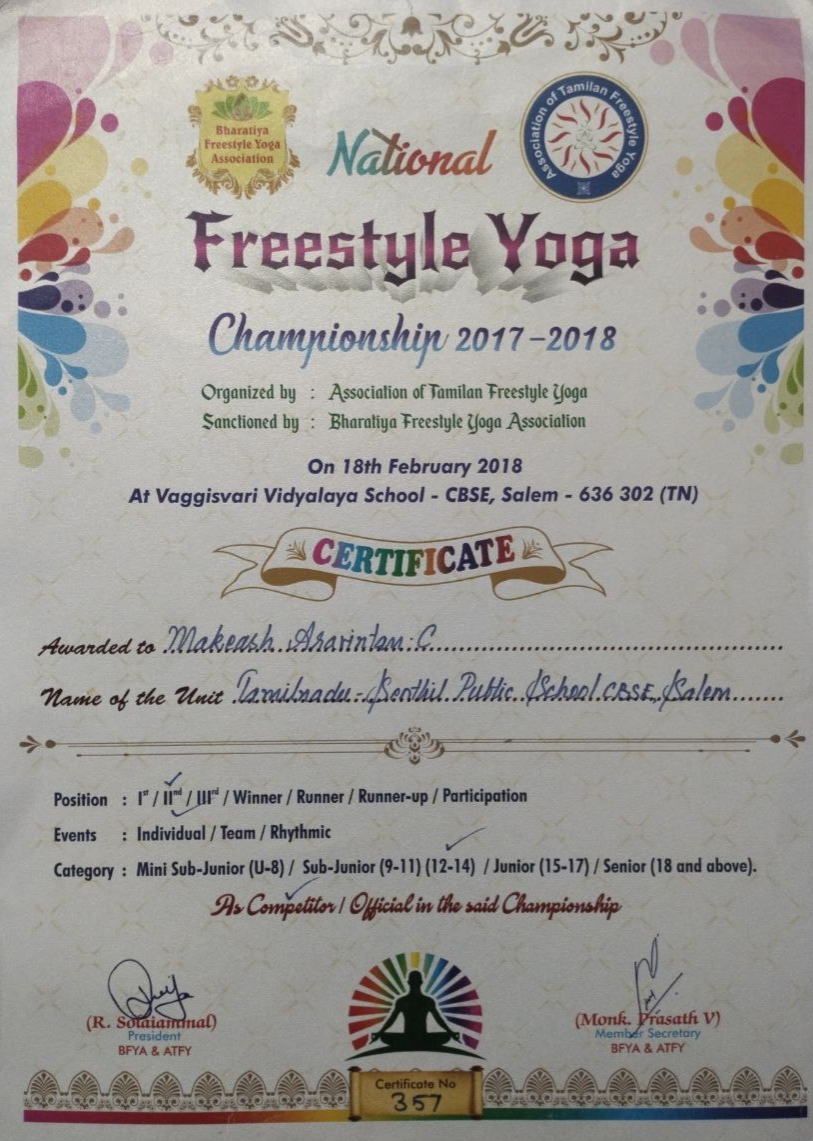 Bharatiya
Freestyle Yoga
Association
National
Association of Tamilan Freestyle Yoga
Freestyle Yoga
Championship 2017-2018
Organized by : Association of Tamilan Freestyle Yoga
Sanctioned by : Bharatiya Freestyle Yoga Association
On 18th February 2018
At Vaggisvari Vidyalaya School - CBSE, Salem - 636 302 (TN)
CERTIFICATE
Awarded to Makeash Aravintan. C
Name of the Unit Tamilnadu - Senthil Public School CBSE, Salem
Position : Iˢᵗ / IIⁿᵈ / IIIʳᵈ / Winner / Runner / Runner-up / Participation
Events : Individual / Team / Rhythmic
Category : Mini Sub-Junior (U-8) / Sub-Junior (9-11) (12-14) / Junior (15-17) / Senior (18 and above).
As Competitor / Official in the said Championship
(R. Solaiammal)
President
BFYA & ATFY
(Monk. Prasath V)
Member Secretary
BFYA & ATFY
Certificate No
357